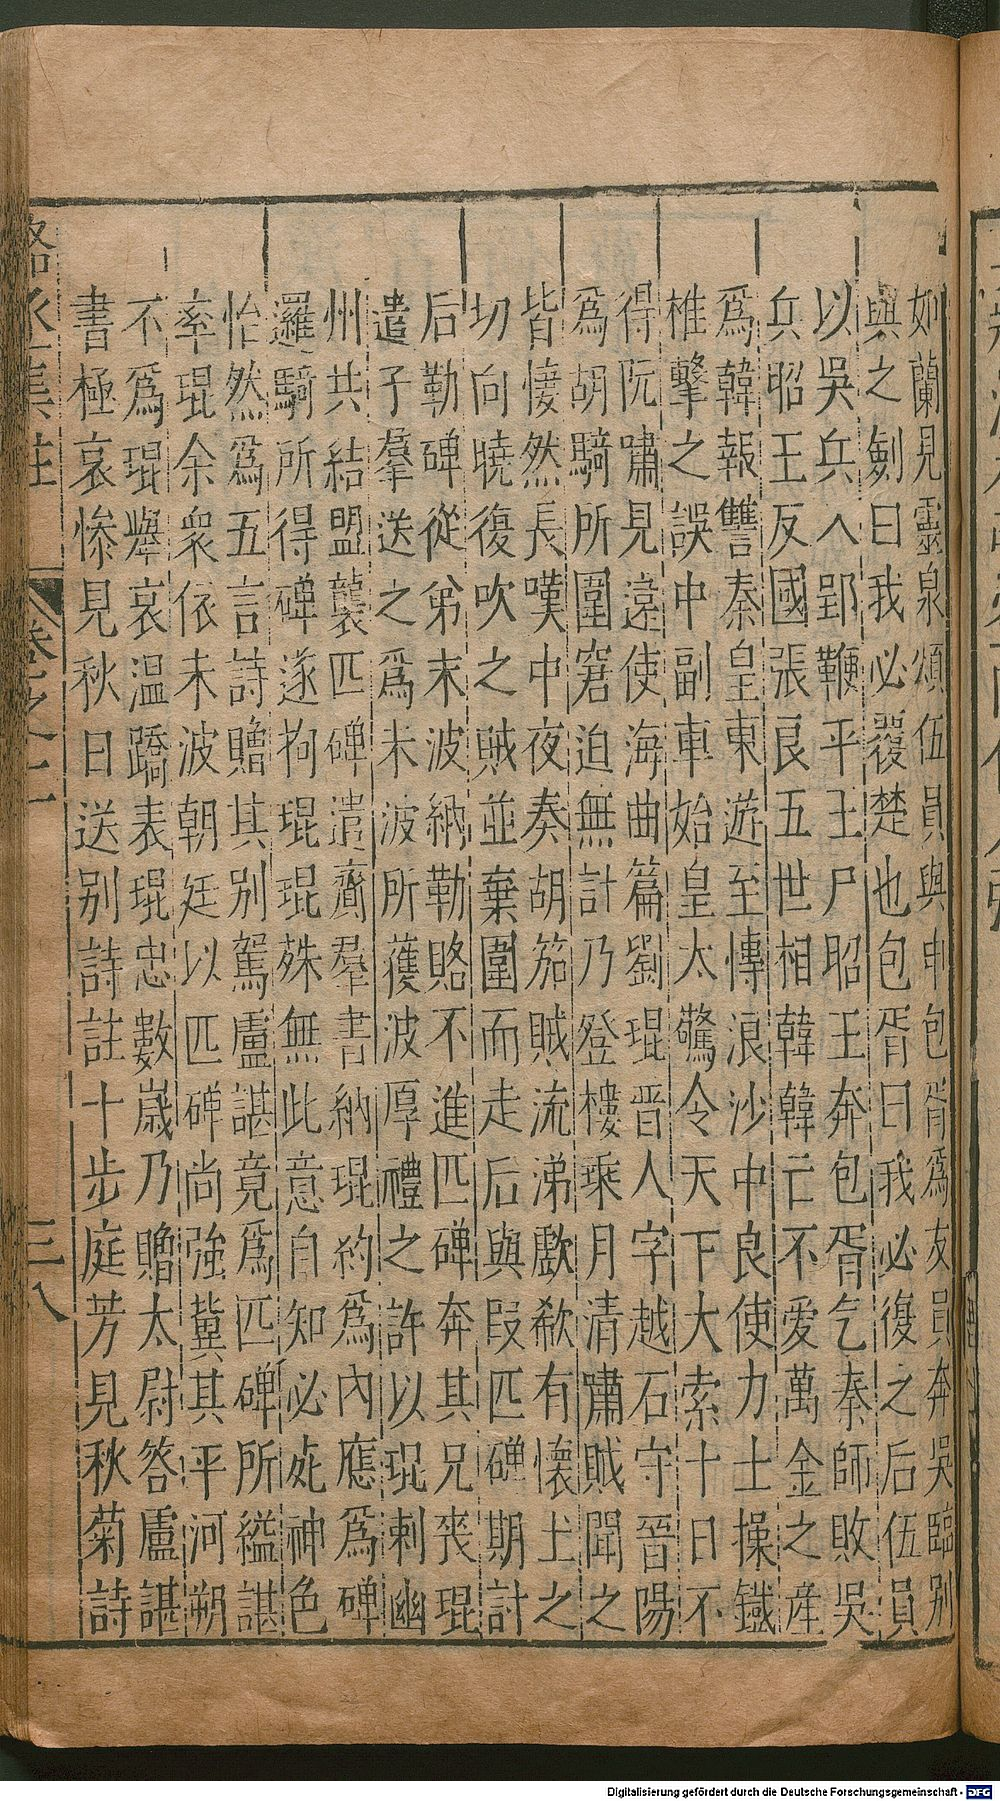 如蘭見靈泉頌伍員與申包胥爲友員奔吳臨別
與之劍曰我必覆楚也包胥曰我必復之后伍員
以吳兵入郢鞭平王尸昭王奔包胥乞秦師敗吳
兵昭王反國張良五世相韓韓亡不愛萬金之產
爲韓報讐秦皇東遊至博浪沙中良使力士操鐵
椎擊之誤中副車始皇太驚令天下大索十日不
得阮嘯見遠使海曲篇劉琨晋人字越石守晉陽
爲胡騎所圍窘迫無計乃登樓乘月清嘯賊聞之
皆悽然長嘆中夜奏胡笳賊流涕歔欷有懷土之
切向曉復吹之賊並棄圍而走后與叚匹磾期計
后勒碑從弟末波納勒賂不進匹磾奔其兄喪琨
遣子羣送之爲末波所獲波厚禮之許以琨刺幽
州共結盟襲匹磾遣齎羣書納琨約爲內應爲磾
邏騎所得碑遂拘琨琨殊無此意自知必死神色
怡然爲五言詩贈其別駕盧諶竟爲匹磾所縊諶
率琨余衆依末波朝廷以匹磾尚強冀其平河朔
不爲琨舉哀温蹻表琨忠數歲乃贈太尉答盧諶
書極哀慘見秋日送别詩註十步庭芳見秋菊詩
駱丞集註
卷之二
三八
Digitalisierung gefördert durch die Deutsche Forschungsgemeinschaft - DFG